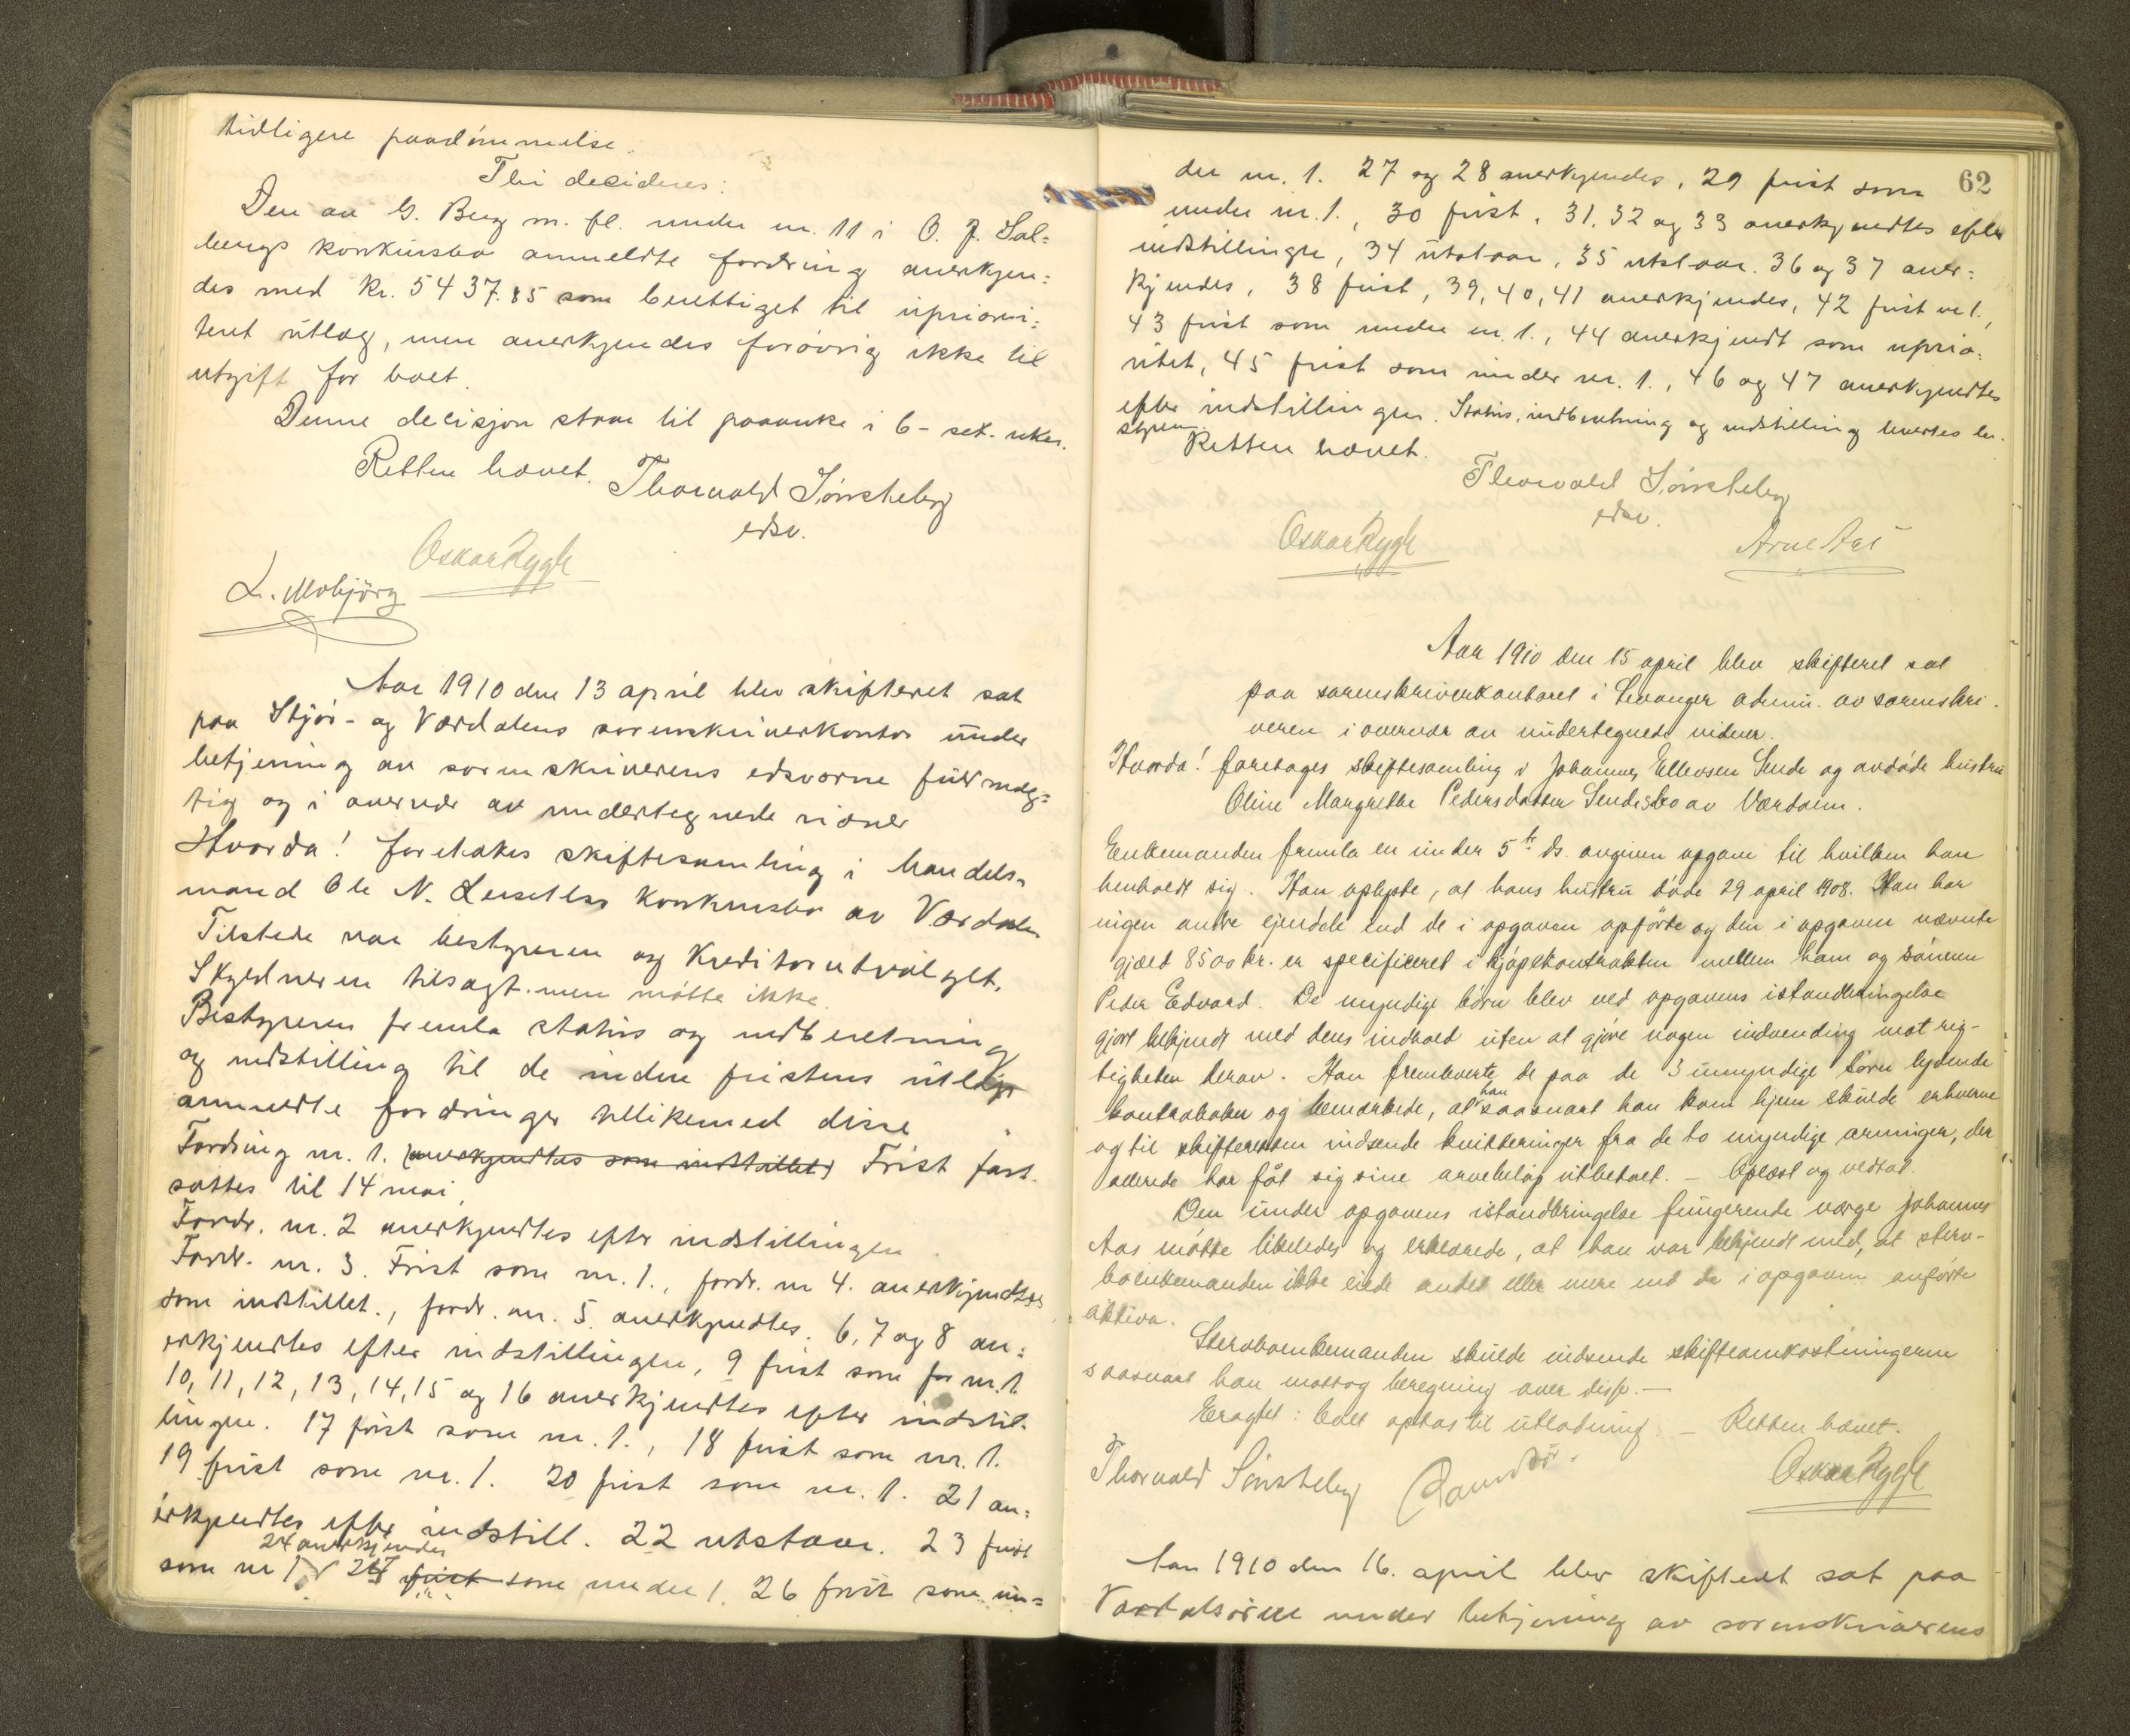 tidligere paadömmelse.
Thi decideres:
Den av G. Berg m. fl. under nr. 11 i O. J. Sol=
bergs konkursbo anmeldte fordring anerkjen=
des med kr. 5437.85 som berettiget til upriori=
teret utlæg, men anerkjendes forövrig ikke til
utgift for boet.
Denne decisjon staar til paaanke i 6 - sex - uker.
Retten hævet. Thorvald Sönsteby
edsv.
Oskar Rygh
L. Mobjörg
Aar 1910 den 13 april blev skifteret sat
paa Stjör- og Værdalens sorenskriverkontor under
betjening av sorenskriverens edsvorne fuldmæg=
tig og i overvær av undertegnede vidner
Hvorda! foretakes skiftesamling i handels=
mand Ole N. konkursbo av Værdalen
Tilstede var bestyreren og kreditorutvalget.
Skyldneren tilsagt men mötte ikke.
Bestyreren fremla status og indberetning
og indstilling til de inden fristens utløp
anmeldte fordringer tillikemed disse
Fordring nr. 1. (anerkjendtes som indstillet) Frist fast-
sattes til 14 mai.
Fordr. nr. 2 anerkjendtes efter indstillingen
Fordr. nr. 3. Frist som nr. 1., fordr. nr 4. anerkjendtes
som indstillet., fordr. nr. 5. anerkjendtes. 6, 7 og 8 an=
erkjendtes efter indstillingen, 9 frist som for nr. 1
10, 11, 12, 13, 14, 15 og 16 anerkjendtes efter indstil-
lingen. 17 frist som nr. 1., 18 frist som nr. 1.
19 frist som nr. 1. 20 frist som nr. 1. 21 an=
erkjendtes efter indstill. 22 utstaar. 23 frist
24 anerkjendes
som nr 1 frist som under 1. 26 frist som un=
62
der nr. 1. 27 og 28 anerkjendes, 29 frist som
under nr. 1., 30 frist, 31, 32 og 33 anerkjendtes efter
indstillingen, 34 utstaar, 35 utstaar. 36 og 37 aner=
kjendes, 38 frist, 39, 40, 41 anerkjendes, 42 frist nr 1.,
43 frist som under nr. 1., 44 anerkjendt som uprio=
ritet, 45 frist som under nr. 1., 46 og 47 anerkjendtes
efter indstillingen. Status, indberetning og indstilling levertes be-
styreren.
Retten hævet.
Thorvald Sönsteby
edsv.
Oskar Rygh Arne
Aar 1910 den 15 april blev skifteret sat
paa sorenskriverkontoret i Levanger admin. av sorenskri-
veren i overvær av undertegnede vidner.
Hvorda! foretages skiftesamling i Johannes Ellevsen Sende og avdöde hustru
Oline Margrethe Pedersdatter Sendes bo av Værdalen.
Enkemanden fremla en under 5te ds. avgiven opgave til hvilken han
henholdt sig. Han oplyste, at hans hustru döde 29 april 1908. Han har
ingen andre ejendele end de i opgaven opförte og den i opgaven nævnte
gjæld 8500 kr. er specificeret i kjöpekontrakten mellem ham og sönnen
Peder Edvard. De myndige börn blev ved opgavens istandbringelse
gjort bekjendt med dens indhold uten at gjöre nogen indvending mot rig-
tigheten derav. Han fremleverte de paa de 3 umyndige börn lydende
kontrabøker og bemerkede, at han saasnart han kom hjem skulde erhverve
og til skifteretten indsende kvitteringer fra de to myndige arvinger, der
allerede har fåt sig sine arvebelöp utbetalt. — Oplæst og vedtat.
Den under opgavens istandbringelse fungerende værge Johannes
Aas mötte likeledes og erklærede, at han var bekjendt med, at sterv-
boenkemanden ikke eiede andet eller mere end de i opgaven anförte
aktiva.
Stervboenkemanden skulde indsende skifteomkostningerne
saasnart han mottog beregning over disse. —
Eragtet: boet optas til utlodning. — Retten hævet.
Thorvald Sönsteby Oskar Rygh
Aar 1910 den 16. april blev skifteret sat paa
Værdalsören under betjening av sorenskriverens